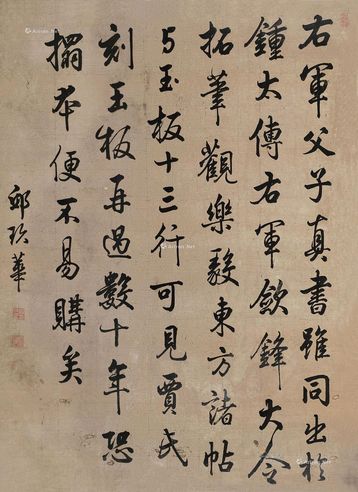 右軍父子真書雖同出於
鍾太傅右軍斂鋒大令
拓筆觀樂毅東方諸帖
与玉板十三行可見賈氏
刻玉板再過數十年恐
搨本便不易購矣
邱玖華